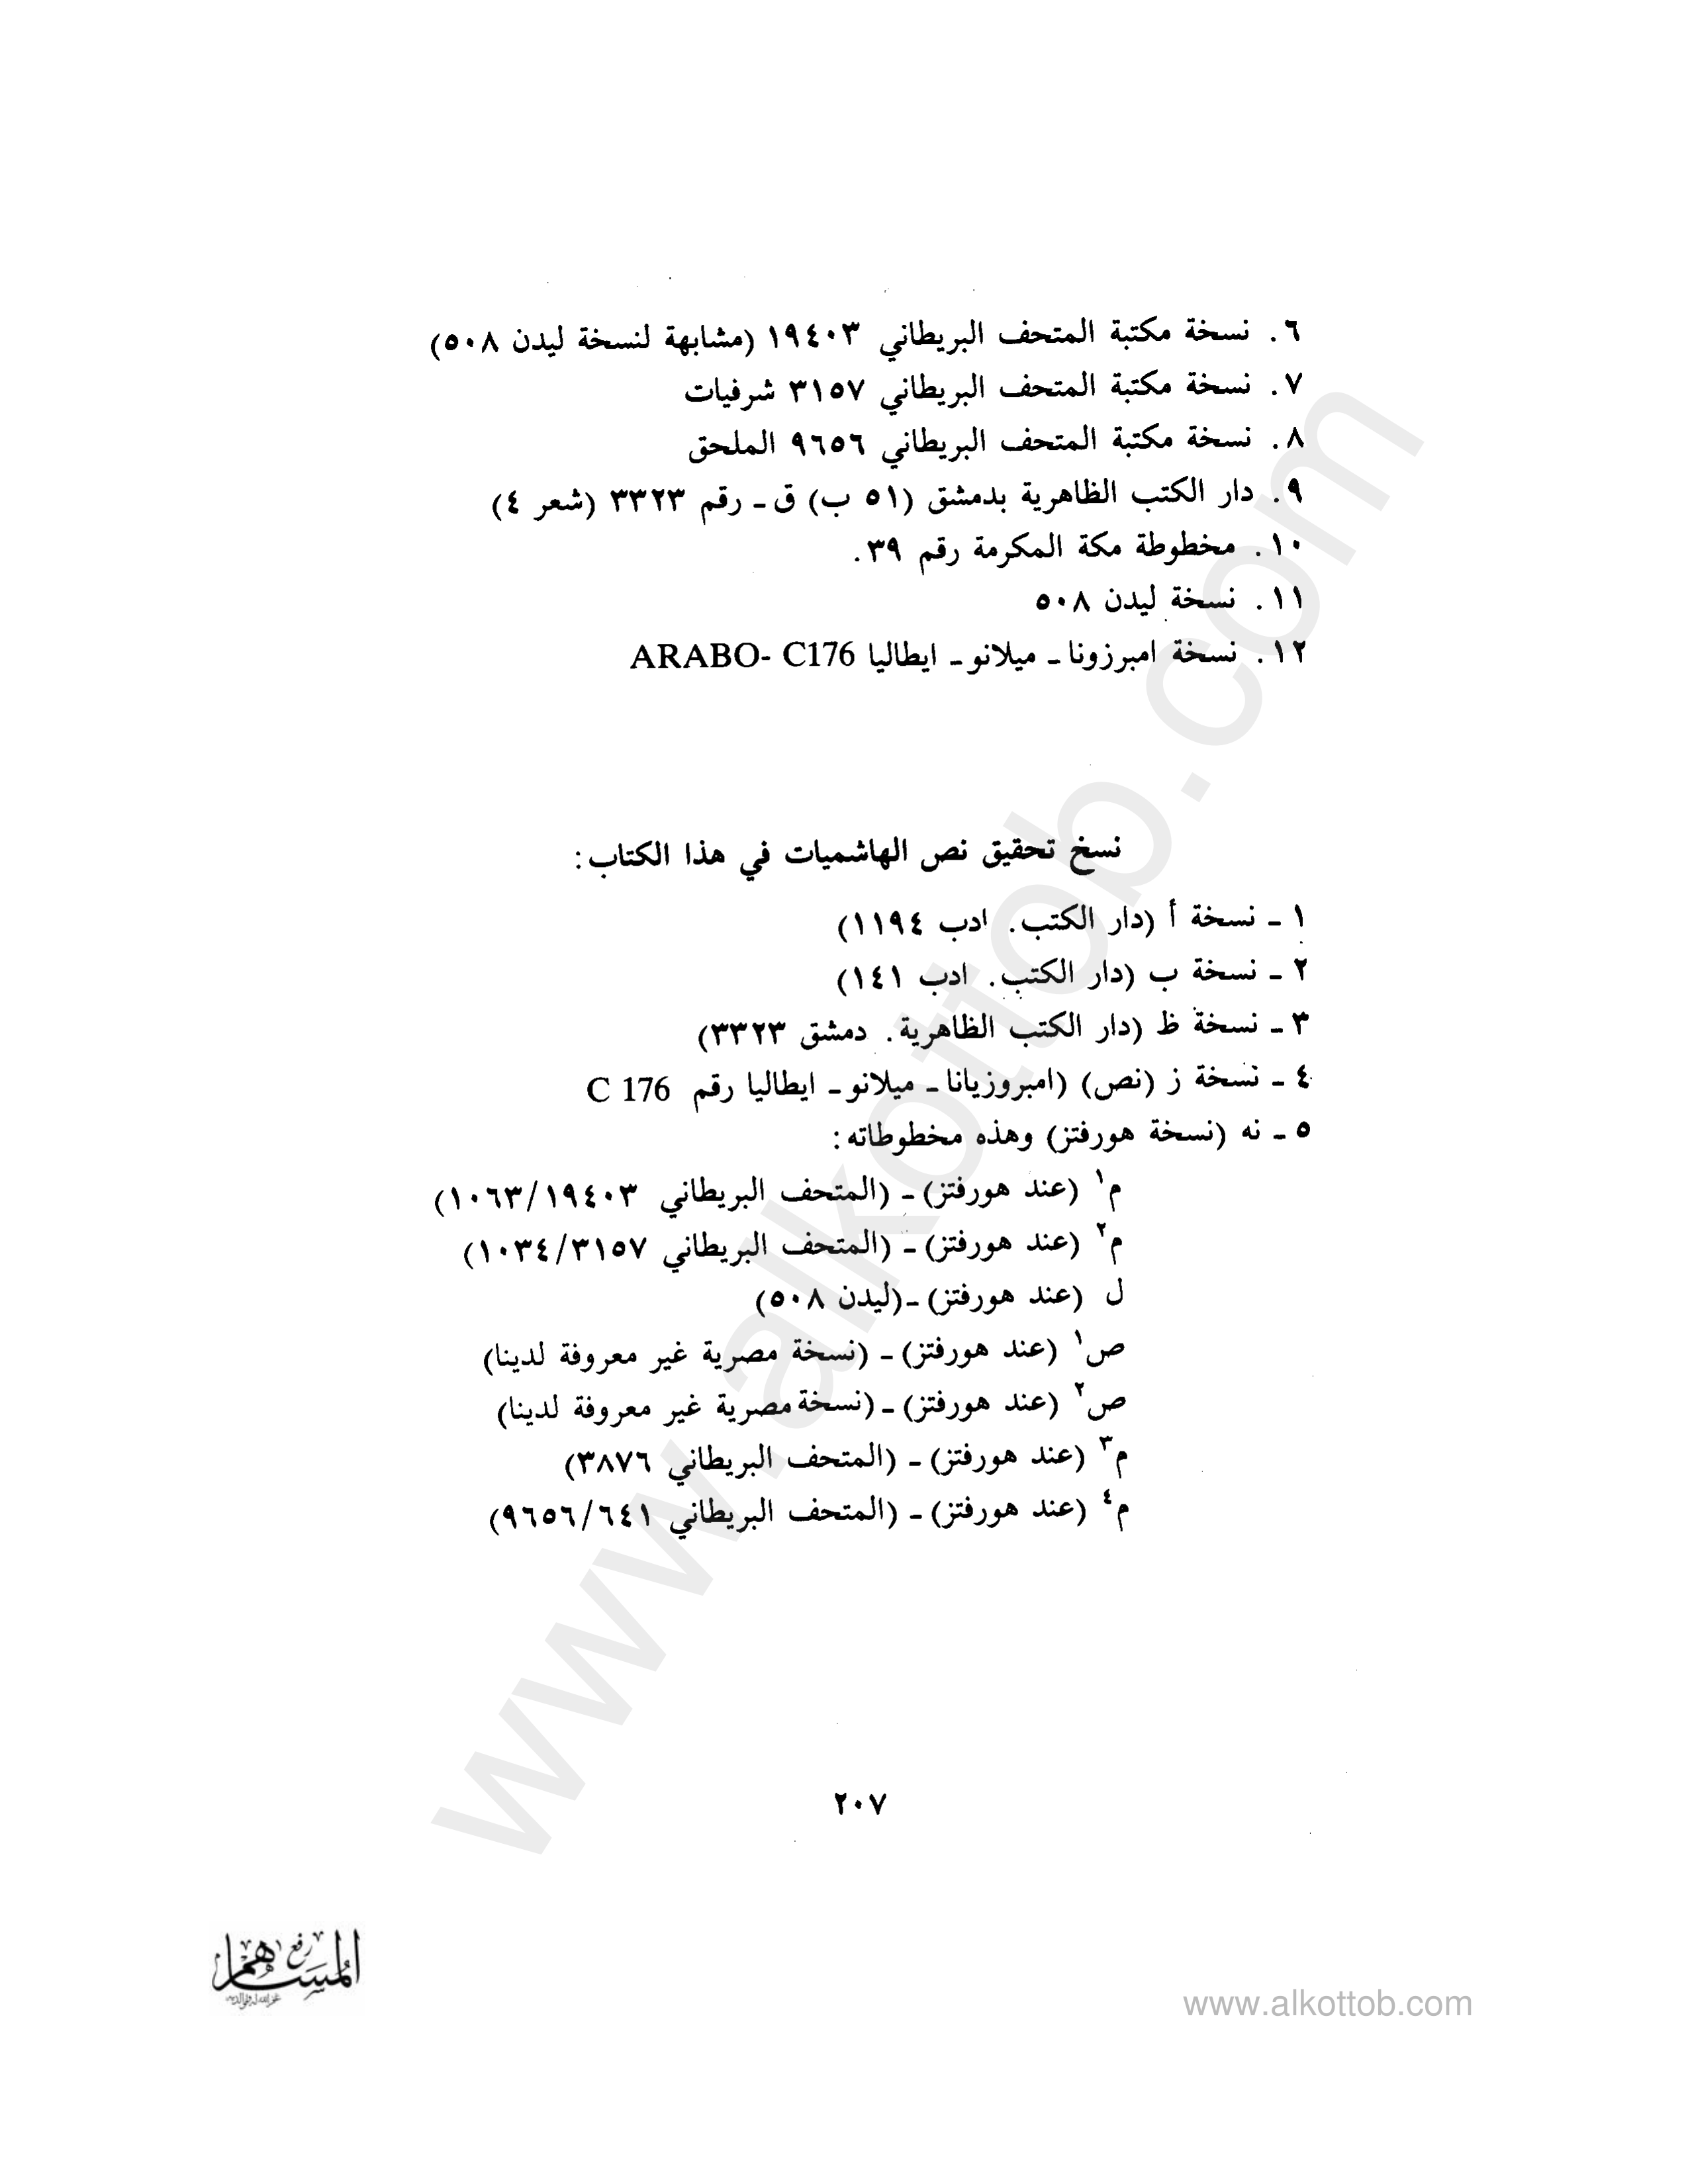 ٦. نسخة مكتبة المتحف البريطاني ١٩٤٠٣ (مشابهة لنسخة ليدن ٥٠٨)
٧. نسخة مكتبة المتحف البريطاني ٣١٥٧ شرفيات
٨. نسخة مكتبة المتحف البريطاني ٩٦٥٦ الملحق
٩. دار الكتب الظاهرية بدمشق (٥١ ب) ق ـ رقم ٣٣٢٣ (شعر ٤)
١٠. مخطوطة مكة المكرمة رقم ٣٩.
١١. نسخة ليدن ٥٠٨
١٢. نسخة امبرزونا ـ ميلانو ـ ايطاليا ARABO- C176
نسخ تحقيق نص الهاشميات في هذا الكتاب:
١ ـ نسخة أ (دار الكتب. ادب ١١٩٤)
٢ ـ نسخة ب (دار الكتب. ادب ١٤١)
٣ ـ نسخة ظ (دار الكتب الظاهرية. دمشق ٣٣٢٣)
٤ ـ نسخة ز (نص) (امبروزيانا ـ ميلانو ـ ايطاليا رقم C 176
٥ ـ نه (نسخة هورفتز) وهذه مخطوطاته:
م١ (عند هورفتز) ـ (المتحف البريطاني ١٠٦٣/١٩٤٠٣)
م٢ (عند هورفتز) ـ (المتحف البريطاني ١٠٣٤/٣١٥٧)
ل (عند هورفتز) ـ (ليدن ٥٠٨)
ص١ (عند هورفتز) ـ (نسخة مصرية غير معروفة لدينا)
ص٢ (عند هورفتز) ـ (نسخة مصرية غير معروفة لدينا)
م٣ (عند هورفتز) ـ (المتحف البريطاني ٣٨٧٦)
م٤ (عند هورفتز) ـ (المتحف البريطاني ٩٦٥٦/٦٤١)
٢٠٧
www.alkottob.com
www.alkottob.com